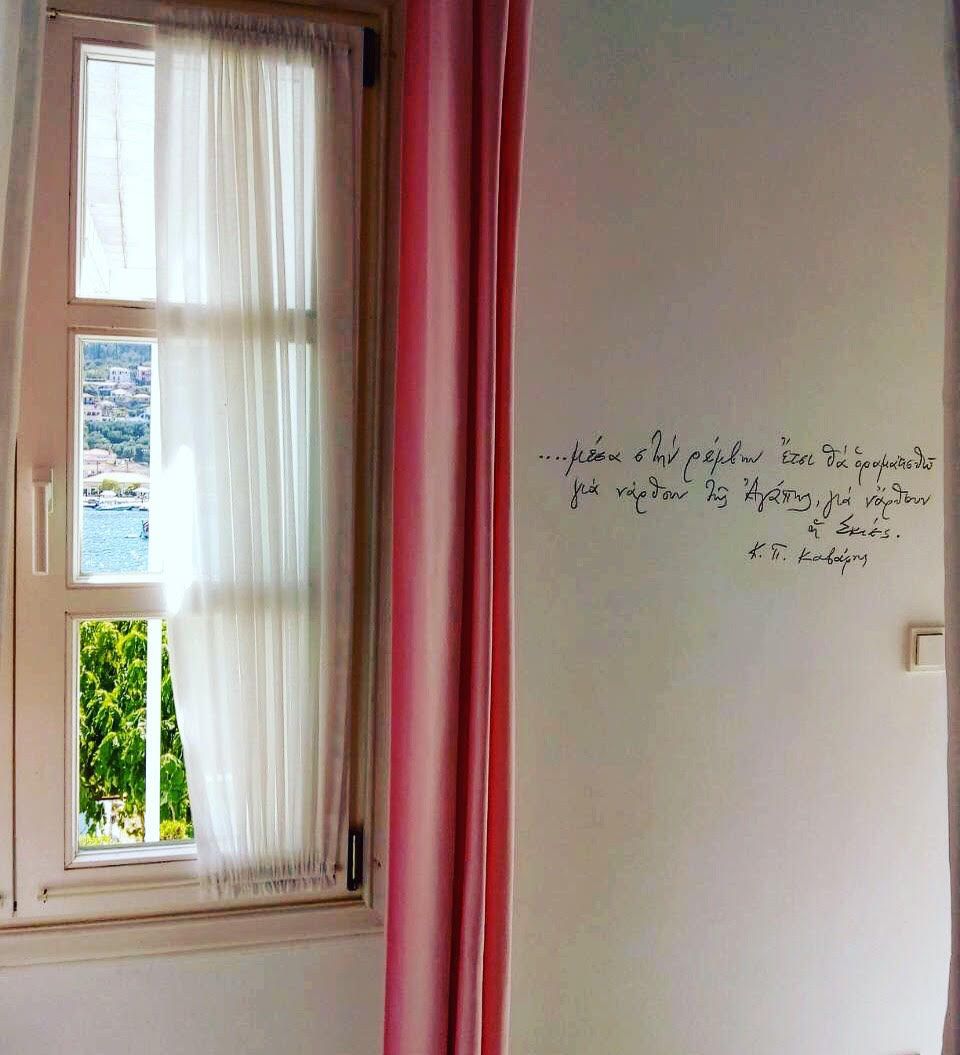 ....μέσα στὴν ρέμβην ἔτσι θὰ ὁραματισθῶ
γιὰ νάρθουν τῆς Ἀγάπης, γιὰ νἄρθουν
ἡ Σκιές.
Κ. Π. Καβάφης